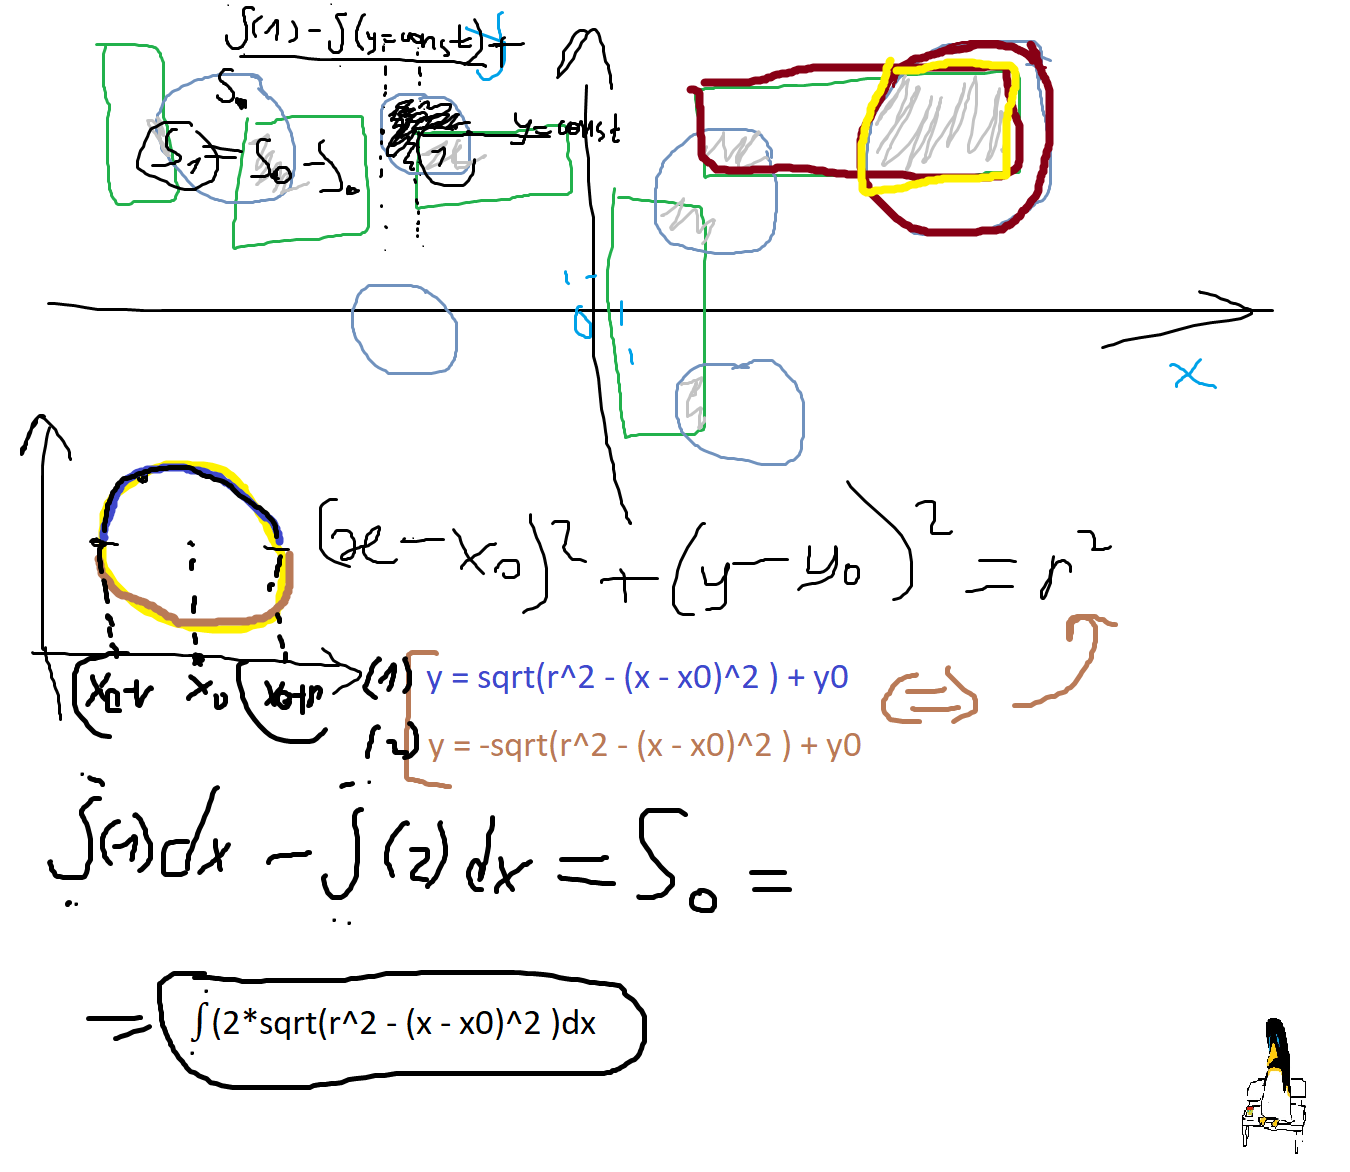 ∫(1) - ∫(y=const) +
y
S.
S1 = S0 - S.
y=const
1
1
0
1
1
x
(x - x0)^2 + (y - y0)^2 = r^2
x0-r x0 x0+r
(1) y = sqrt(r^2 - (x - x0)^2 ) + y0
(2) y = -sqrt(r^2 - (x - x0)^2 ) + y0
⇔
∫(1)dx - ∫(2)dx = S0 =
= ∫(2*sqrt(r^2 - (x - x0)^2 )dx